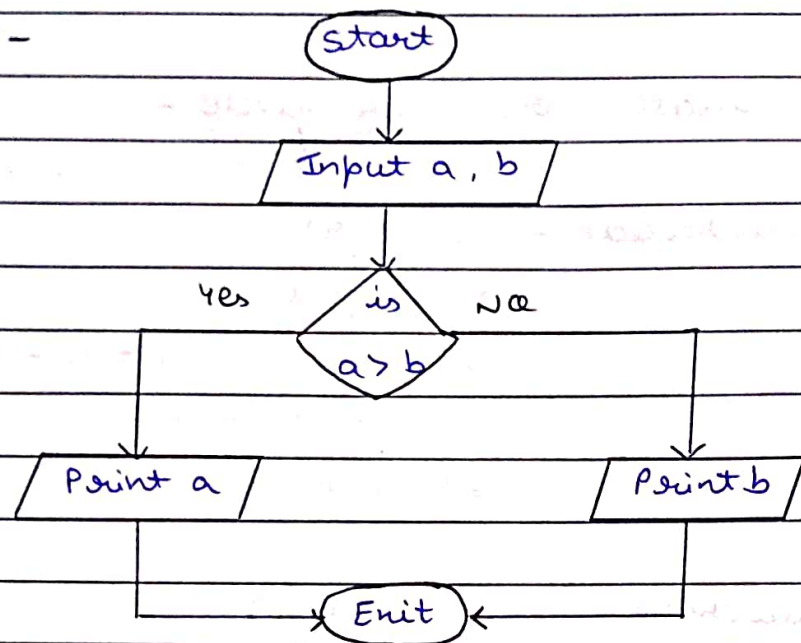 Start
Input a, b
Yes
is
No
a > b
Print a
Print b
Exit